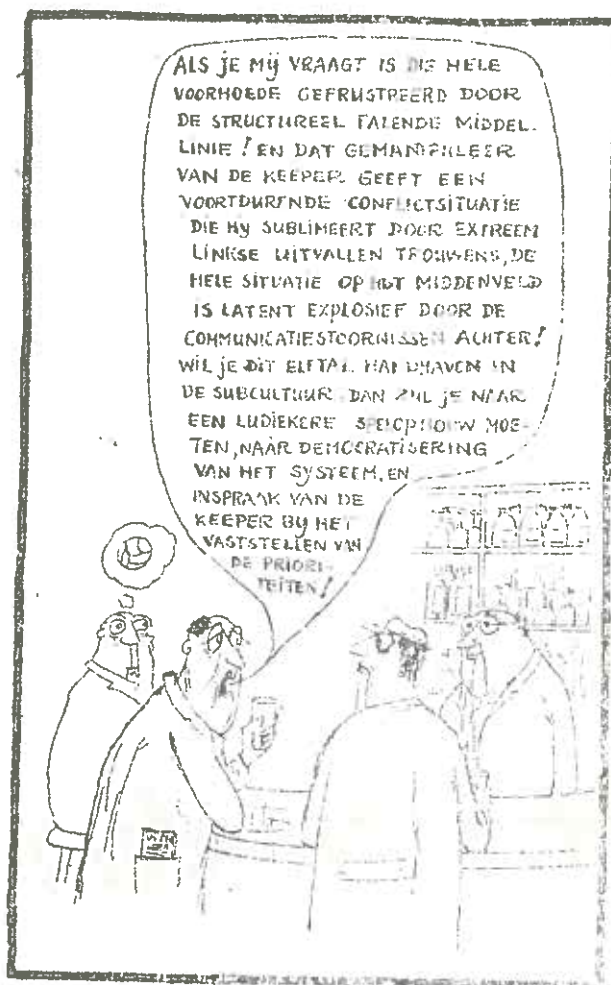 ALS JE MIJ VRAAGT IS DIE HELE
VOORHOEDE GEFRUSTREERD DOOR
DE STRUCTUREEL FALENDE MIDDEL-
LINIE! EN DAT GEMANIPULEER
VAN DE KEEPER GEEFT EEN
VOORTDURENDE CONFLICTSITUATIE
DIE HY SUBLIMEERT DOOR EXTREEM
LINKSE UITVALLEN TROUWENS, DE
HELE SITUATIE OP HET MIDDENVELD
IS LATENT EXPLOSIEF DOOR DE
COMMUNICATIESTOORNISSEN ACHTER!
WIL JE DIT ELFTAL HANDHAVEN IN
DE SUBCULTUUR DAN ZUL JE NAAR
EEN LUDIEKERE SPELOPBOUW MOE-
TEN, NAAR DEMOCRATISERING
VAN HET SYSTEEM, EN
INSPRAAK VAN DE
KEEPER BIJ HET
VASTSTELLEN VAN
DE PRIORI-
TEITEN!